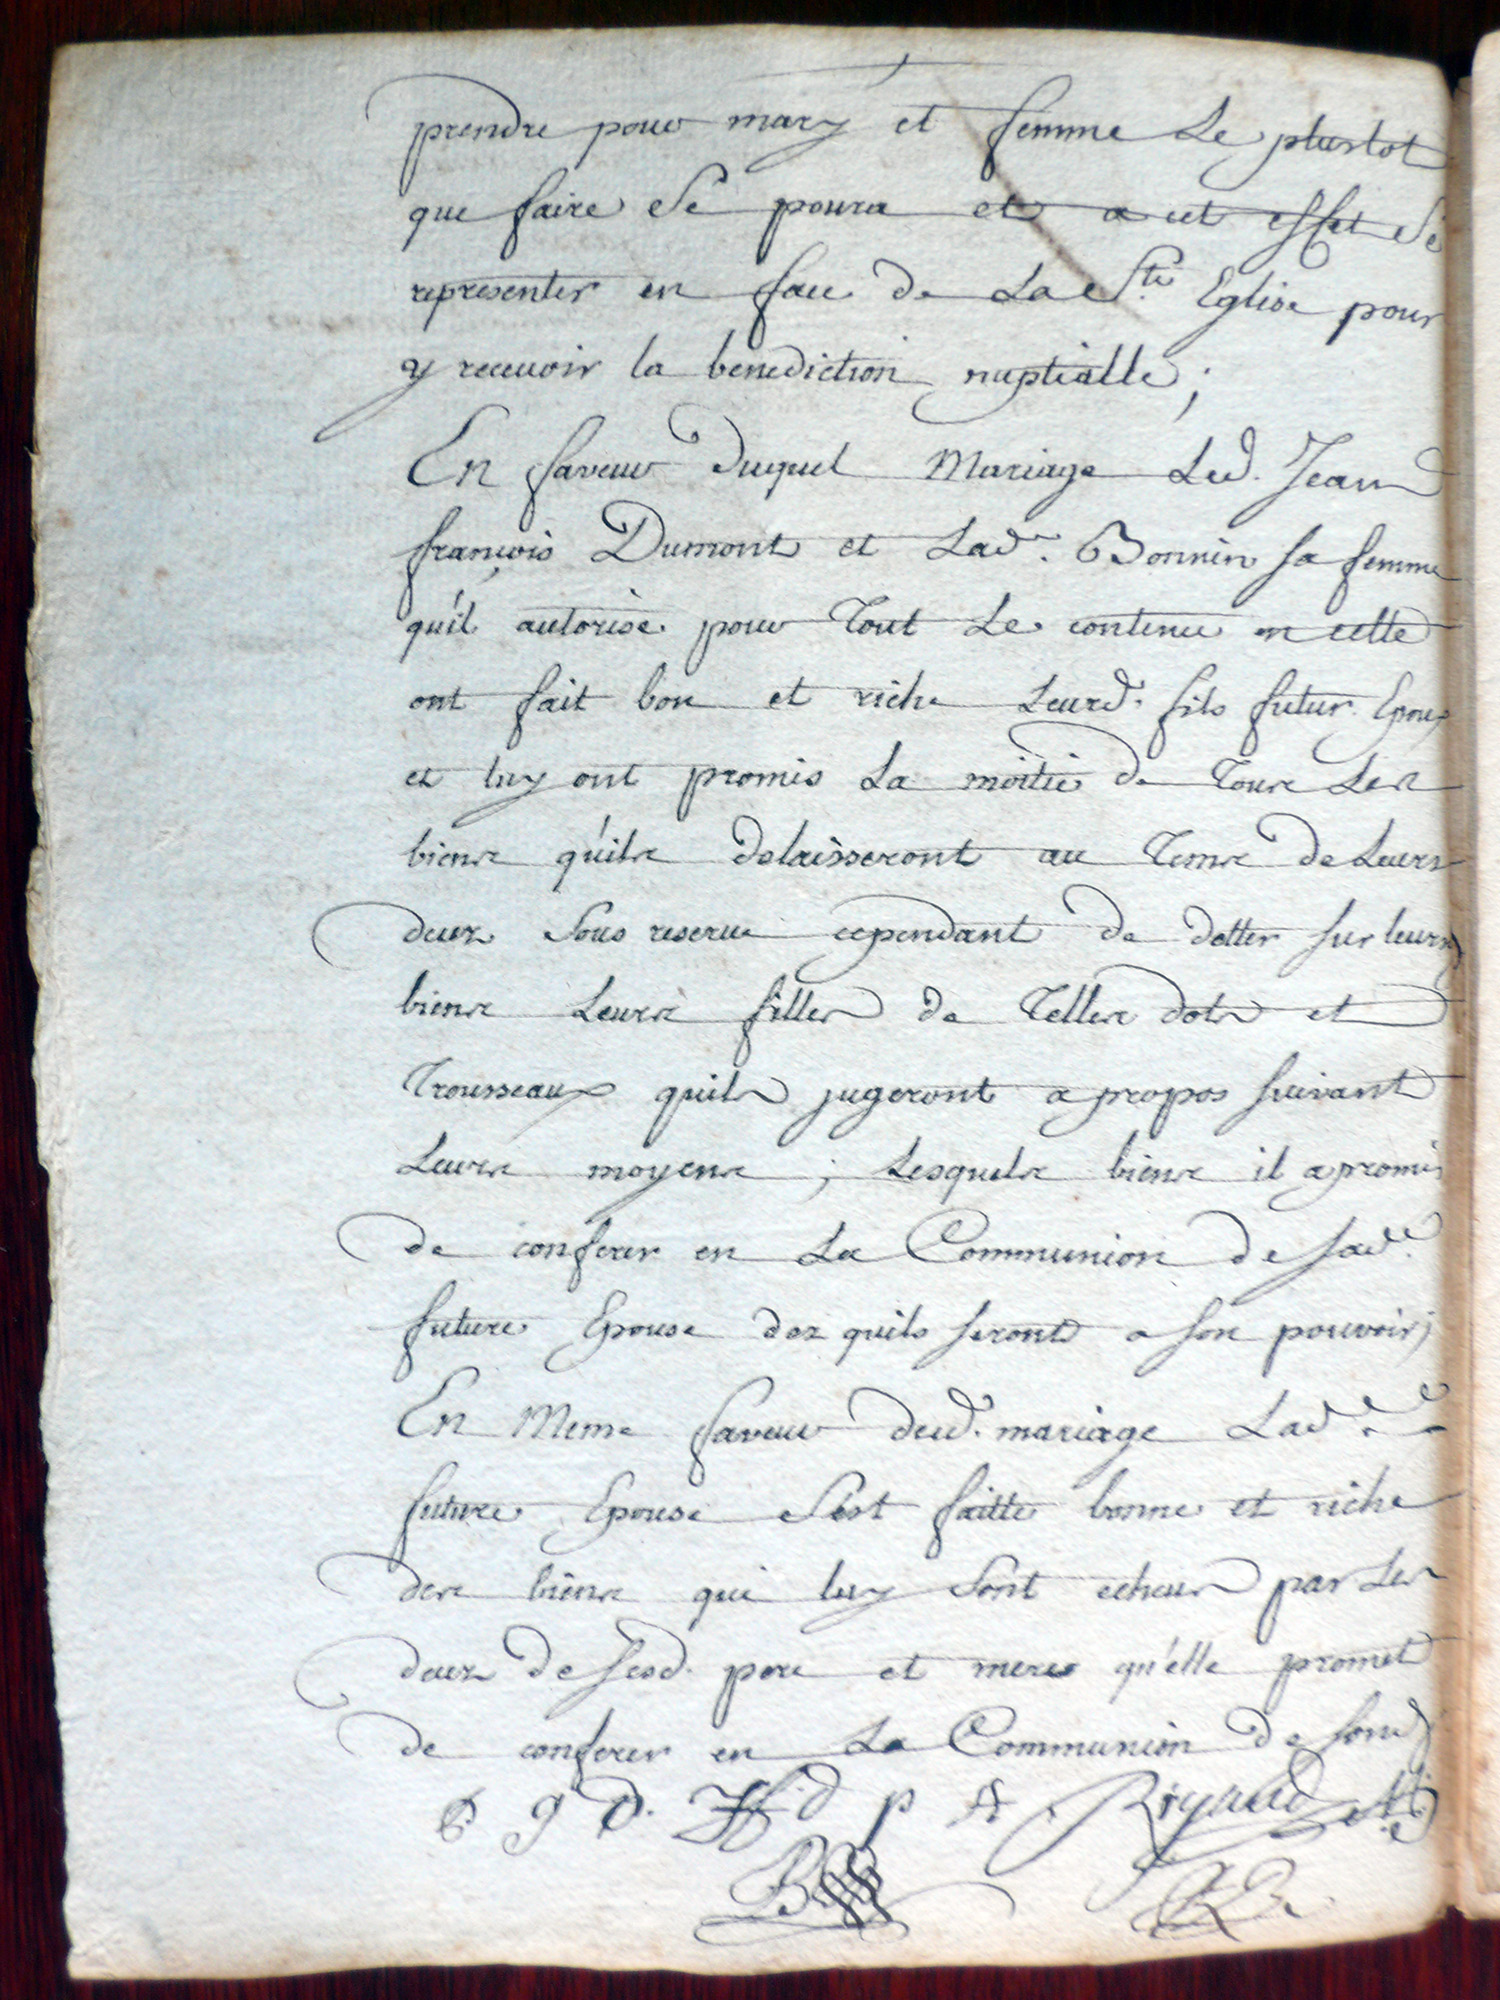 prendre pour mary et femme Le plustot
que faire Se poura et a cet effet Se
representer en face de La Ste Eglise pour
y recevoir la benediction nuptialle ;
En faveur duquel Mariage Led. Jean
françois Dumont et Lad. Bonnin sa femme
qu'il autorise pour Tout Le contenu en cette
ont fait bon et riche Leurd. fils futur Epoux
et luy ont promis La moitié de Tous Les
biens qu'ils delaisseront au Tems de Leurs
deces Sous reserve cependant de dotter sur leurs
biens Leurs filles de Telles dots et
Trousseaux quils jugeront a propos suivant
Leurs moyens ; Lesquels biens il a promis
de conferer en La Communion de sade.
future Epouse dez quils seront a son pouvoir ;
En Meme faveur deud. mariage Lade.
future Epouse S'est faitte bonne et riche
des biens qui luy Sont echeus par Les
deces de sesd. pere et mere qu'elle promet
de conferer en La Communion de sond.
g D. d p A Rigaud
B